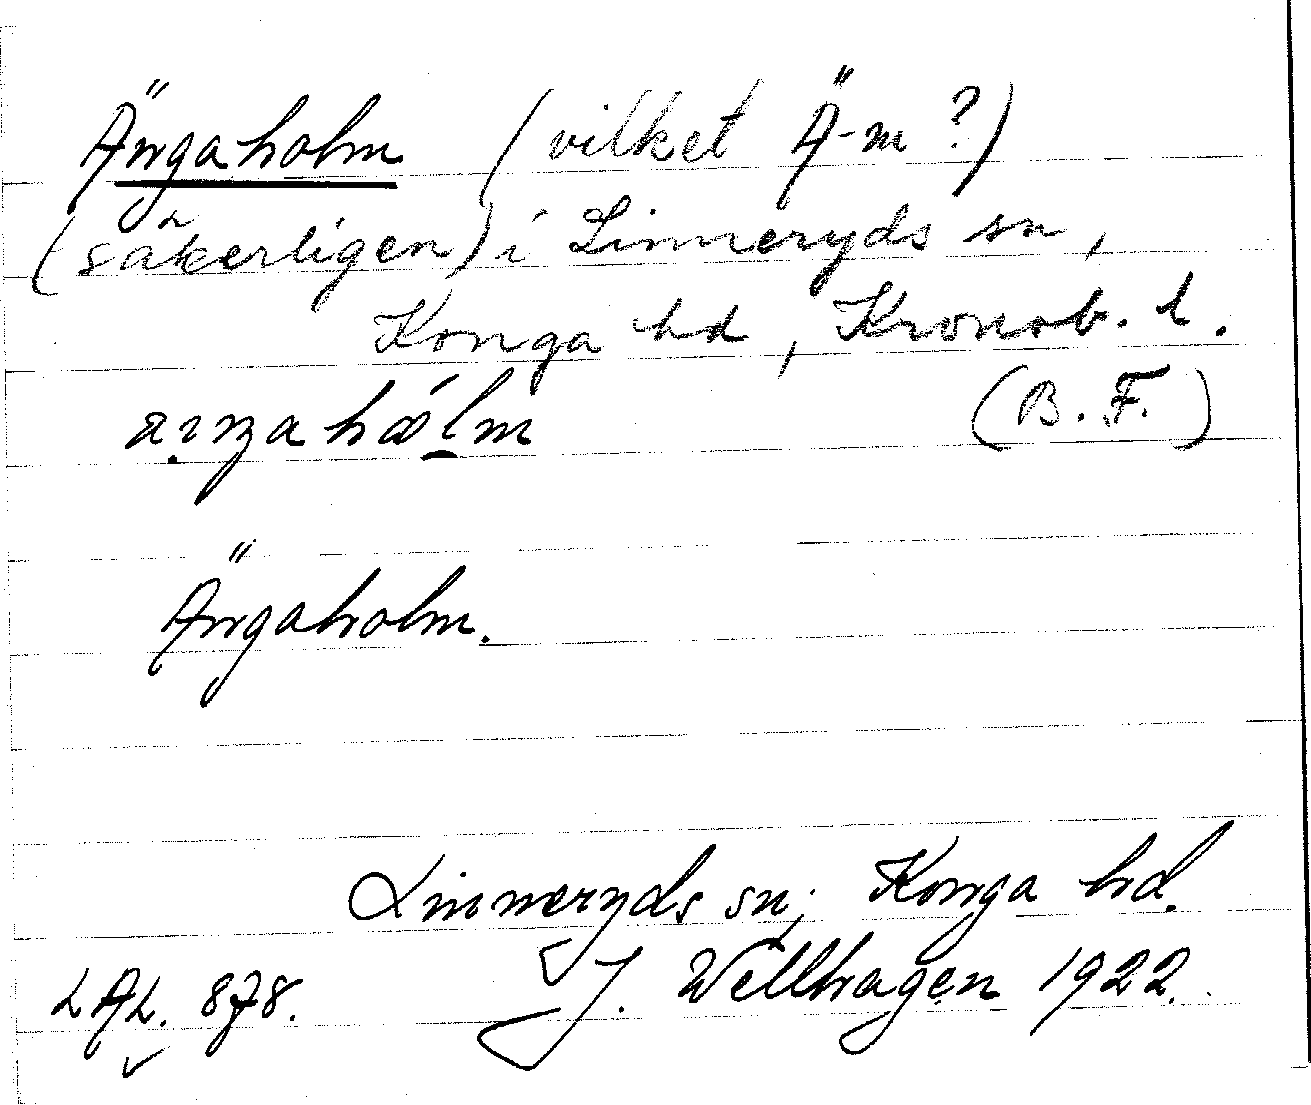 Ängaholm (vilket Ä-m?)
(säkerligen) i Linneryds sn,
Konga hd, Kronob. l.
(B. F.)
Ängaholm.
Linneryds sn; Konga hd.
J. Wellhagen 1922.
LAL. 878.